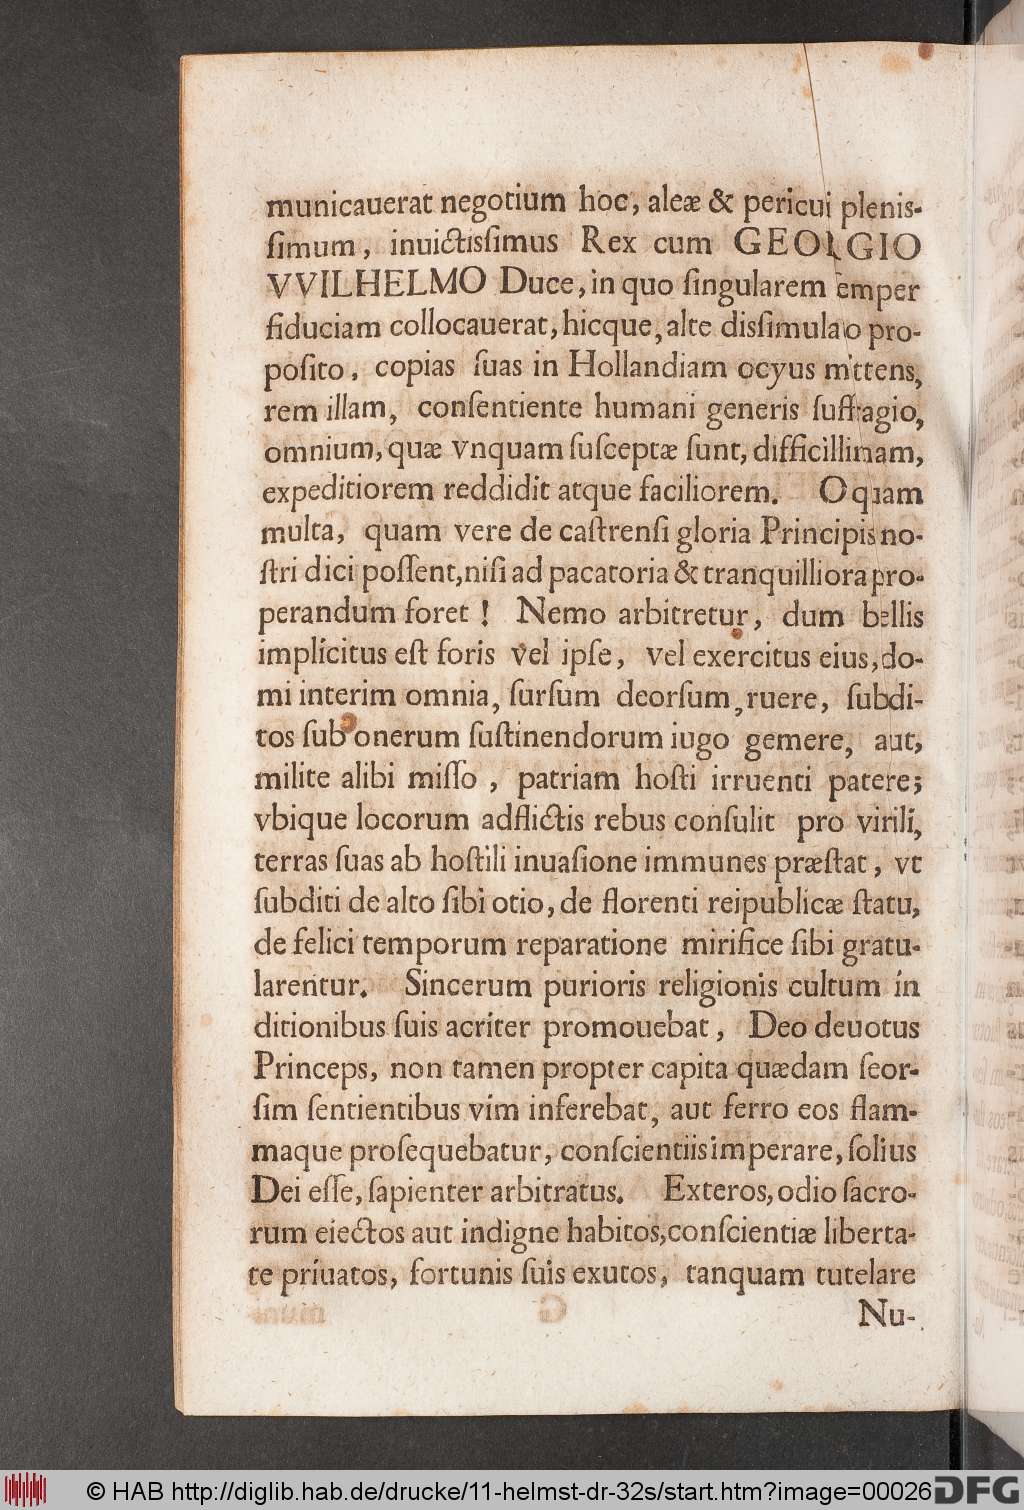 municauerat negotium hoc, aleæ & pericui plenis-
ſimum, inuictisſimus Rex cum GEORGIO
VVILHELMO Duce, in quo ſingularem ſemper
fiduciam collocauerat, hicque, alte disſimulao pro-
poſito, copias ſuas in Hollandiam ocyus mittens,
rem illam, conſentiente humani generis ſuffragio,
omnium, quæ vnquam ſuſceptæ ſunt, difficillimam,
expeditiorem reddidit atque faciliorem. O quam
multa, quam vere de caſtrenſi gloria Principis no-
ſtri dici poſſent, niſi ad pacatoria & tranquilliora pro-
perandum foret! Nemo arbitretur, dum bellis
implicitus eſt foris vel ipſe, vel exercitus eius, do-
mi interim omnia, ſurſum deorſum, ruere, ſubdi-
tos ſub onerum ſuſtinendorum iugo gemere, aut,
milite alibi miſſo, patriam hoſti irruenti patere;
vbique locorum adflictis rebus conſulit pro virili,
terras ſuas ab hoſtili inuaſione immunes præſtat, vt
ſubditi de alto ſibi otio, de florenti reipublicæ ſtatu,
de felici temporum reparatione mirifice ſibi gratu-
larentur. Sincerum purioris religionis cultum in
ditionibus ſuis acriter promouebat, Deo deuotus
Princeps, non tamen propter capita quædam ſeor-
ſim ſentientibus vim inferebat, aut ferro eos flam-
maque proſequebatur, conſcientiis imperare, ſolius
Dei eſſe, ſapienter arbitratus. Exteros, odio ſacro-
rum eiectos aut indigne habitos, conſcientiæ liberta-
te priuatos, fortunis ſuis exutos, tanquam tutelare
Nu-
© HAB http://diglib.hab.de/drucke/11-helmst-dr-32s/start.htm?image=00026 DFG